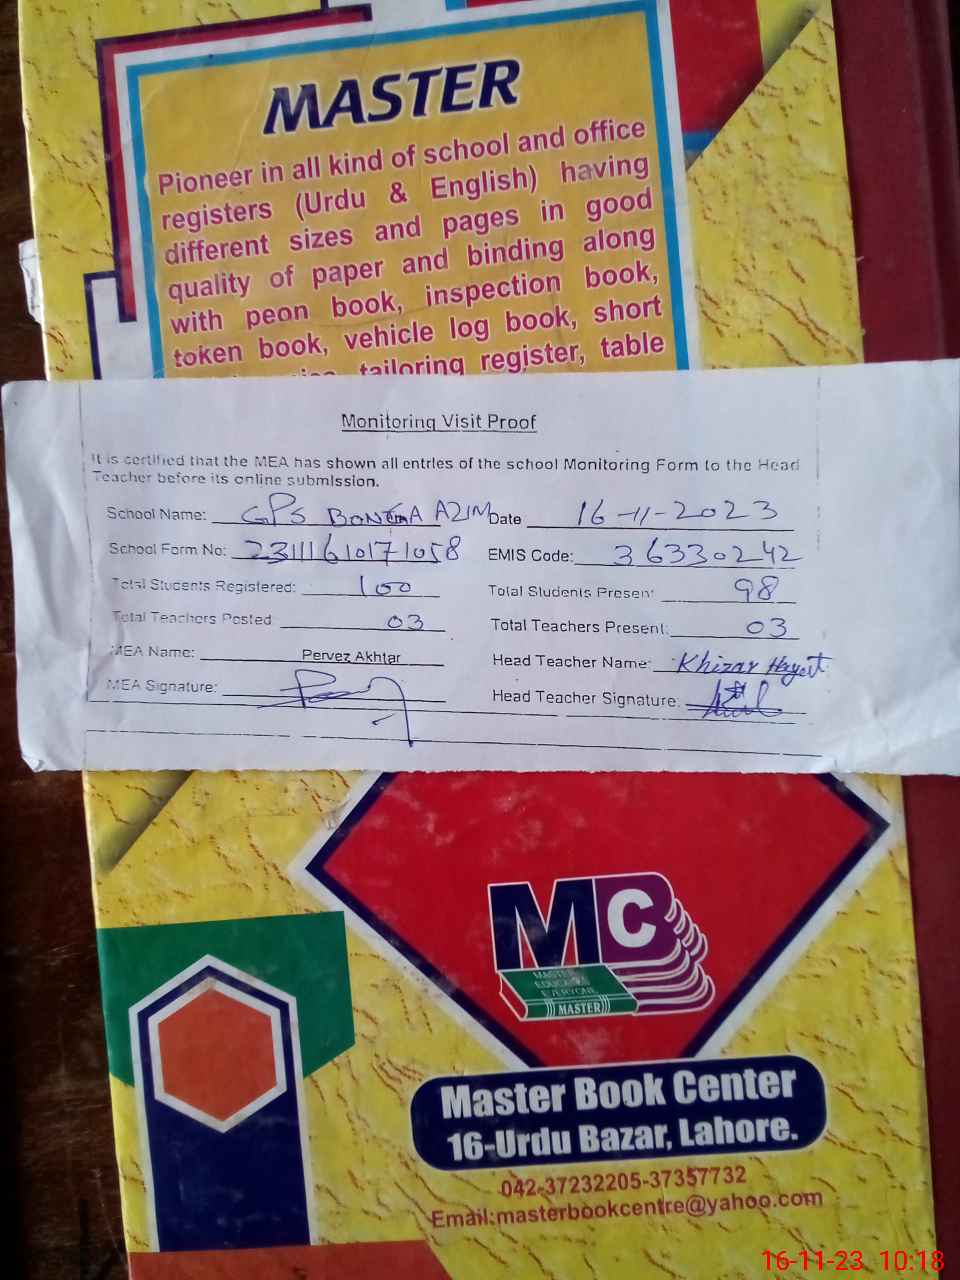 MASTER
Pioneer in all kind of school and office
registers (Urdu & English) having
different sizes and pages in good
quality of paper and binding along
with peon book, inspection book,
token book, vehicle log book, short
tailoring register, table
Monitoring Visit Proof
It is certified that the MEA has shown all entries of the school Monitoring Form to the Head
Teacher before its online submission.
School Name: GPS BONGA AZIM Date 16-11-2023
School Form No: 23111610171058 EMIS Code: 36330242
Total Students Registered: 100 Total Students Present 98
Total Teachers Posted 03 Total Teachers Present: 03
MEA Name: Pervez Akhtar Head Teacher Name: Khizar Hayat
MEA Signature: Head Teacher Signature:
MC
MASTER
EDUCATES
EVERYONE
MASTER
Master Book Center
16-Urdu Bazar, Lahore.
042-37232205-37357732
Email:masterbookcentre@yahoo.com
16-11-23 10:18